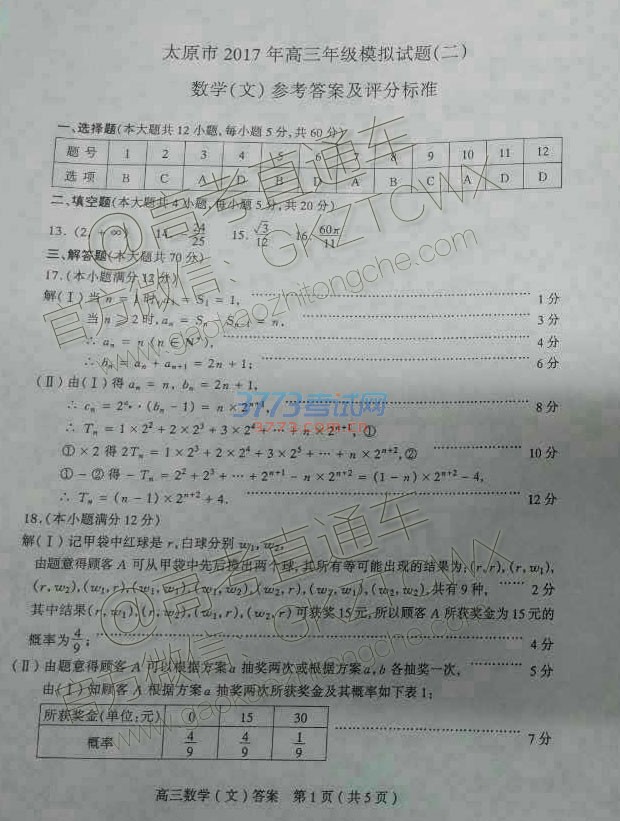 太原市2017年高三年级模拟试题(二)
数学(文)参考答案及评分标准
一、选择题(本大题共12小题,每小题5分,共60分)
题号 1 2 3 4 5 6 7 8 9 10 11 12
选项 B C A D B D A B C A D D
二、填空题(本大题共4小题,每小题5分,共20分)
13.(2,+∞) 14. -24/25 15. √3/12 16. 60π/11
三、解答题(本大题共70分)
17.(本小题满分12分)
解(Ⅰ)当n=1时,a₁=S₁=1, ………… 1分
当n⩾2时,aₙ=Sₙ-Sₙ₋₁=n, ………… 3分
∴ aₙ=n(n∈N*), ………… 4分
∴ bₙ=aₙ+aₙ₊₁=2n+1; ………… 6分
(Ⅱ)由(Ⅰ)得aₙ=n, bₙ=2n+1,
∴ cₙ=2^aₙ·(bₙ-1)=n×2ⁿ⁺¹, ………… 8分
∴ Tₙ=1×2²+2×2³+3×2⁴+…+n×2ⁿ⁺¹, ①
①×2得2Tₙ=1×2³+2×2⁴+3×2⁵+…+n×2ⁿ⁺²,② ………… 10分
①-②得-Tₙ=2²+2³+…+2ⁿ⁺¹-n×2ⁿ⁺²=(1-n)×2ⁿ⁺²-4,
∴ Tₙ=(n-1)×2ⁿ⁺²+4. ………… 12分
18.(本小题满分12分)
解(Ⅰ)记甲袋中红球是r,白球分别w₁,w₂,
由题意得顾客A可从甲袋中先后摸出两个球,其所有等可能出现的结果为:(r,r),(r,w₁),
(r,w₂),(w₁,r),(w₁,w₁),(w₁,w₂),(w₂,r),(w₂,w₁),(w₂,w₂),共有9种, …… 2分
其中结果(r,w₁),(r,w₂),(w₁,r),(w₂,r)可获奖15元,所以顾客A所获奖金为15元的
概率为4/9; ………… 4分
(Ⅱ)由题意得顾客A可以根据方案a抽奖两次或根据方案a,b各抽奖一次. ………… 5分
由(Ⅰ)知顾客A根据方案a抽奖两次所获奖金及其概率如下表1:
所获奖金(单位:元) 0 15 30
概率 4/9 4/9 1/9 ………… 7分
高三数学(文)答案 第1页(共5页)
@高考直通车
官方微信:GKZTCWX
www.gaokaozhitongche.com
3773考试网
3773.com.cn
@高考直通车
官方微信:GKZTCWX
www.gaokaozhitongche.com